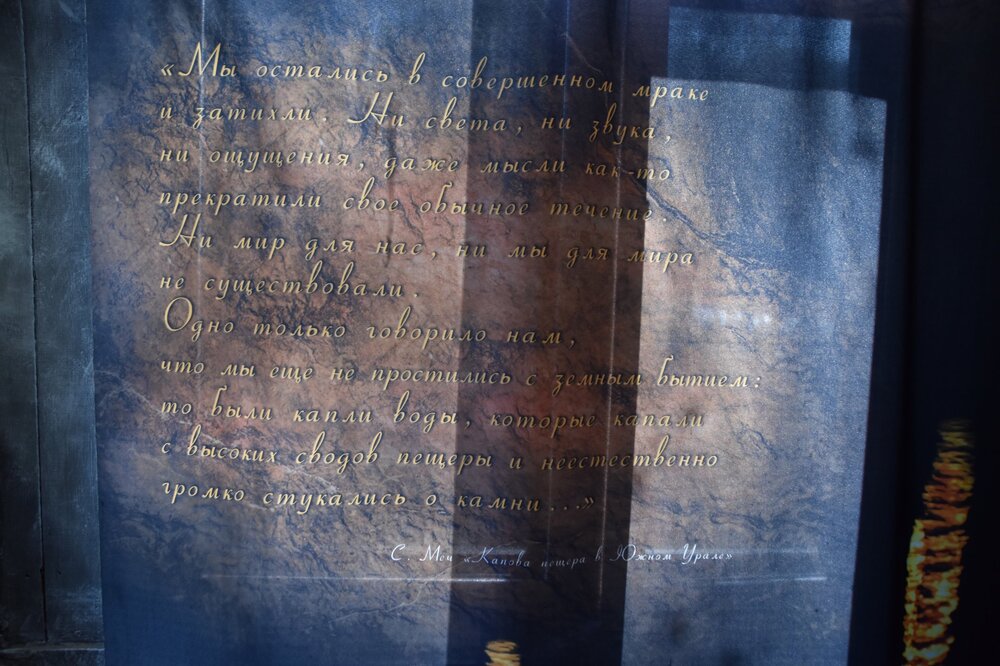 «Мы остались в совершенном мраке
и затихли. Ни света, ни звука,
ни ощущения, даже мысли как-то
прекратили свое обычное течение.
Ни мир для нас, ни мы для мира
не существовали.
Одно только говорило нам,
что мы еще не простились с земным бытием:
то были капли воды, которые капали
с высоких сводов пещеры и неестественно
громко стукались о камни...»
С. Меч «Капова пещера в Южном Урале»